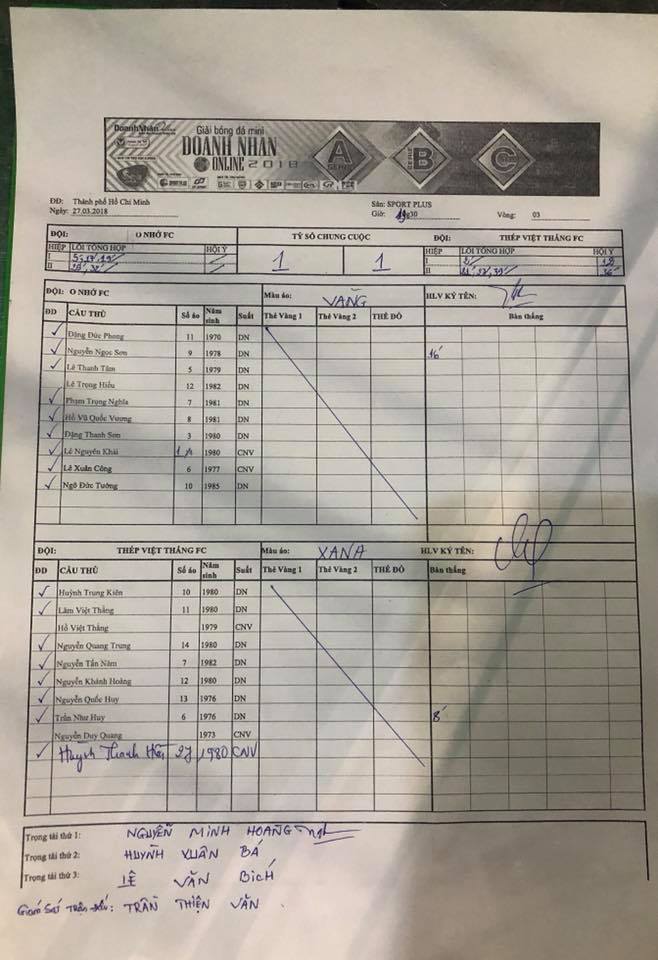 DoanhNhân
Giải bóng đá mini
DOANH NHÂN
ONLINE 2018
SERIE A
SERIE B
SERIE C
ĐĐ: Thành phố Hồ Chí Minh Sân: SPORT PLUS
Ngày: 27.03.2018 Giờ: 19g30 Vòng: 03
ĐỘI: O NHỚ FC TỶ SỐ CHUNG CUỘC ĐỘI: THÉP VIỆT THẮNG FC
HIỆP LỖI TỔNG HỢP HỘI Ý 1 1 HIỆP LỖI TỔNG HỢP HỘI Ý
I I
II II 36'
ĐỘI: O NHỚ FC Màu áo: VÀNG HLV KÝ TÊN:
ĐD CẦU THỦ Số áo Năm sinh Suất Thẻ Vàng 1 Thẻ Vàng 2 THẺ ĐỎ Bàn thắng
✓ Đặng Đức Phong 11 1970 DN
✓ Nguyễn Ngọc Sơn 9 1978 DN 16'
✓ Lê Thanh Tâm 5 1979 DN
Lê Trọng Hiếu 12 1982 DN
✓ Phạm Trọng Nghĩa 7 1981 DN
✓ Hồ Vũ Quốc Vương 8 1981 DN
✓ Đặng Thanh Sơn 3 1980 DN
✓ Lê Nguyên Khải 1980 CNV
✓ Lê Xuân Công 6 1977 CNV
✓ Ngô Đức Tường 10 1985 DN
ĐỘI: THÉP VIỆT THẮNG FC Màu áo: XANH HLV KÝ TÊN:
ĐD CẦU THỦ Số áo Năm sinh Suất Thẻ Vàng 1 Thẻ Vàng 2 THẺ ĐỎ Bàn thắng
✓ Huỳnh Trung Kiên 10 1980 DN
✓ Lâm Việt Thắng 11 1980 DN
Hồ Việt Thắng 1979 CNV
✓ Nguyễn Quang Trung 14 1980 DN
✓ Nguyễn Tấn Năm 7 1982 DN
✓ Nguyễn Khánh Hoàng 12 1980 DN
✓ Nguyễn Quốc Huy 13 1976 DN
✓ Trần Như Huy 6 1976 DN 8'
Nguyễn Duy Quang 1973 CNV
✓ Huỳnh Thanh 27 1980 CNV
Trọng tài thứ 1: NGUYỄN MINH HOÀNG
Trọng tài thứ 2: HUỲNH XUÂN BÁ
Trọng tài thứ 3: LÊ VĂN BICH
Giám Sát Trận đấu: TRẦN THIỆN VĂN